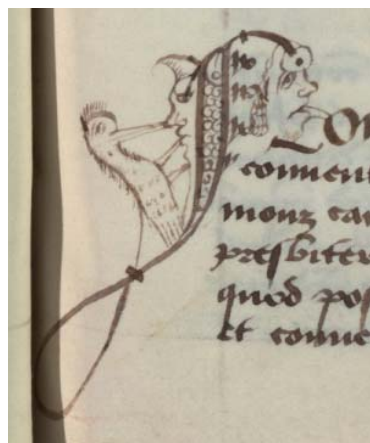 conuen
monz ca
presbiter
quod pos
et conue